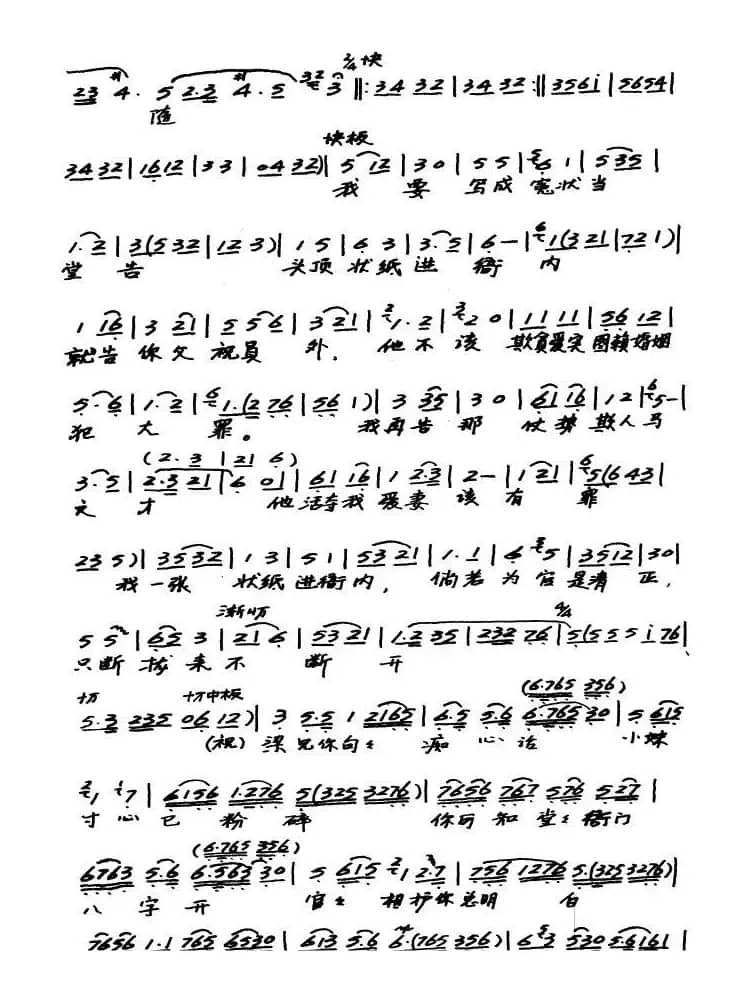 2/4 快
2 3 4 . 5 2 . 3 4 . 5 32 3 ‖: 34 32 | 34 32 :‖ 356i | 5654 |
随
块板
3432 | 1612 | 3 3 | 04 32) | 5 12 | 3 0 | 5 5 | 5 6 1 | 5 35 |
我 要 写成 冤状当
1 . 2 | 3 (5 32 | 12 3) | 1 5 | 6 3 | 3 . 5 | 6 — | 6 1 (3 21 | 72 1) |
堂 告 头顶 状纸 进 衙 内
1 16 | 3 21 | 5 5 6 | 3 21 | 2 1 . 2 | 3 2 0 | 11 11 | 56 12 |
就告 你父 祝员 外, 他不 该 欺贫爱实 图赖婚姻
5 . 6 | 1 . 2 | 6 1 . (2 76 | 56 1) | 3 35 | 3 0 | 61 16 | 1 2 | 6 5 — |
犯 大 罪。 我再告 那 仗势 欺人马
(2 . 3 | 21 6)
3 . 5 | 2 . 3 21 | 6 0 | 61 16 | 1 2 . 3 | 2 — | 1 21 | 6 5 (6 43 |
文 才 他活夺我 爱妻 该 有 罪
23 5) | 35 32 | 1 3 | 5 1 | 53 21 | 1 . 1 | 6 2 5 | 35 12 | 30 |
我一张 状纸 进衙内, 倘若 为官 是清 正,
渐切 4/4
5 5 | 65 3 | 21 6 | 53 21 | 1 . 2 35 | 232 76 | 5 (5 5 5 i 76 |
只断 拢来 不 断 开
中板
5 . 3 235 06 12) | 3 5 . 5 1 2165 | 6 . 5 5 . 6 6 . 765 30 | 5 615
(6 . 765 356)
(祝) 梁兄你句句 痴 心话 小妹
2 1 i 7 | 6156 1 . 276 5 (325 3276) | 7656 767 576 527 |
寸心已 粉 碎 你可 知堂堂衙门
(6 . 765 356)
6763 5 . 6 6 . 563 30 | 5 615 2 1 2 . 7 | 756 1276 5 . (325 3276) |
八 字 开 官官 相护你总明 白
7656 1 . 1 765 6530 | 613 5 . 6 6 . (765 356) | 6 3 530 5 . 6161 |